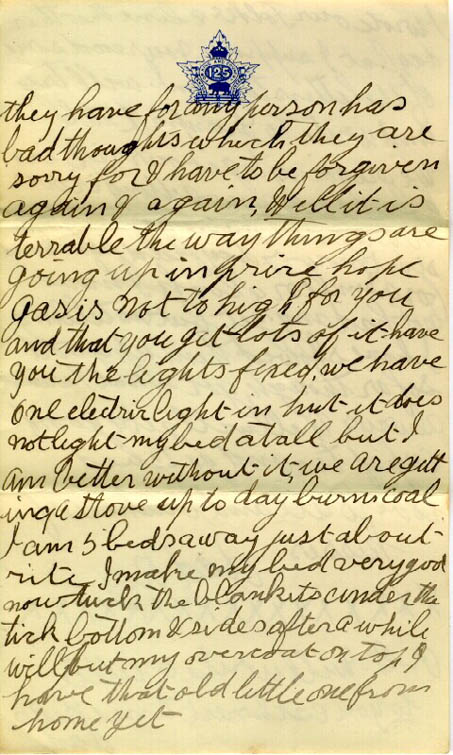 125
they have for any person has
bad thoughts which they are
sorry for & have to be forgiven
again & again, Well it is
terrable the way things are
going up in price hope
gas is not to high for you
and that you get lots of it have
you the lights fixed, we have
one electric light in hut it does
not light my bed at all but I
am better without it, we are gett
ing a stove up to day burns coal
I am 5 beds away just about
rite I make my bed very good
now tuck the blankits under the
tick bottom & sides after a while
will put my overcoat on top I
have that old little one from
home yet